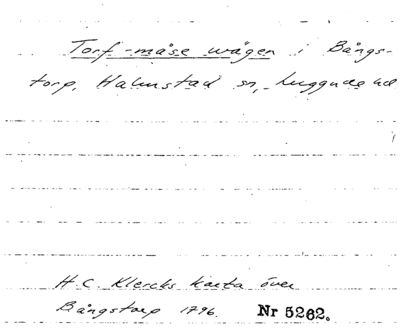 Torf-måse wägen i Bångs-
torp, Halmstad sn, Luggude hd
H.C. Klercks karta över
Bångstorp 1796. Nr 5262.